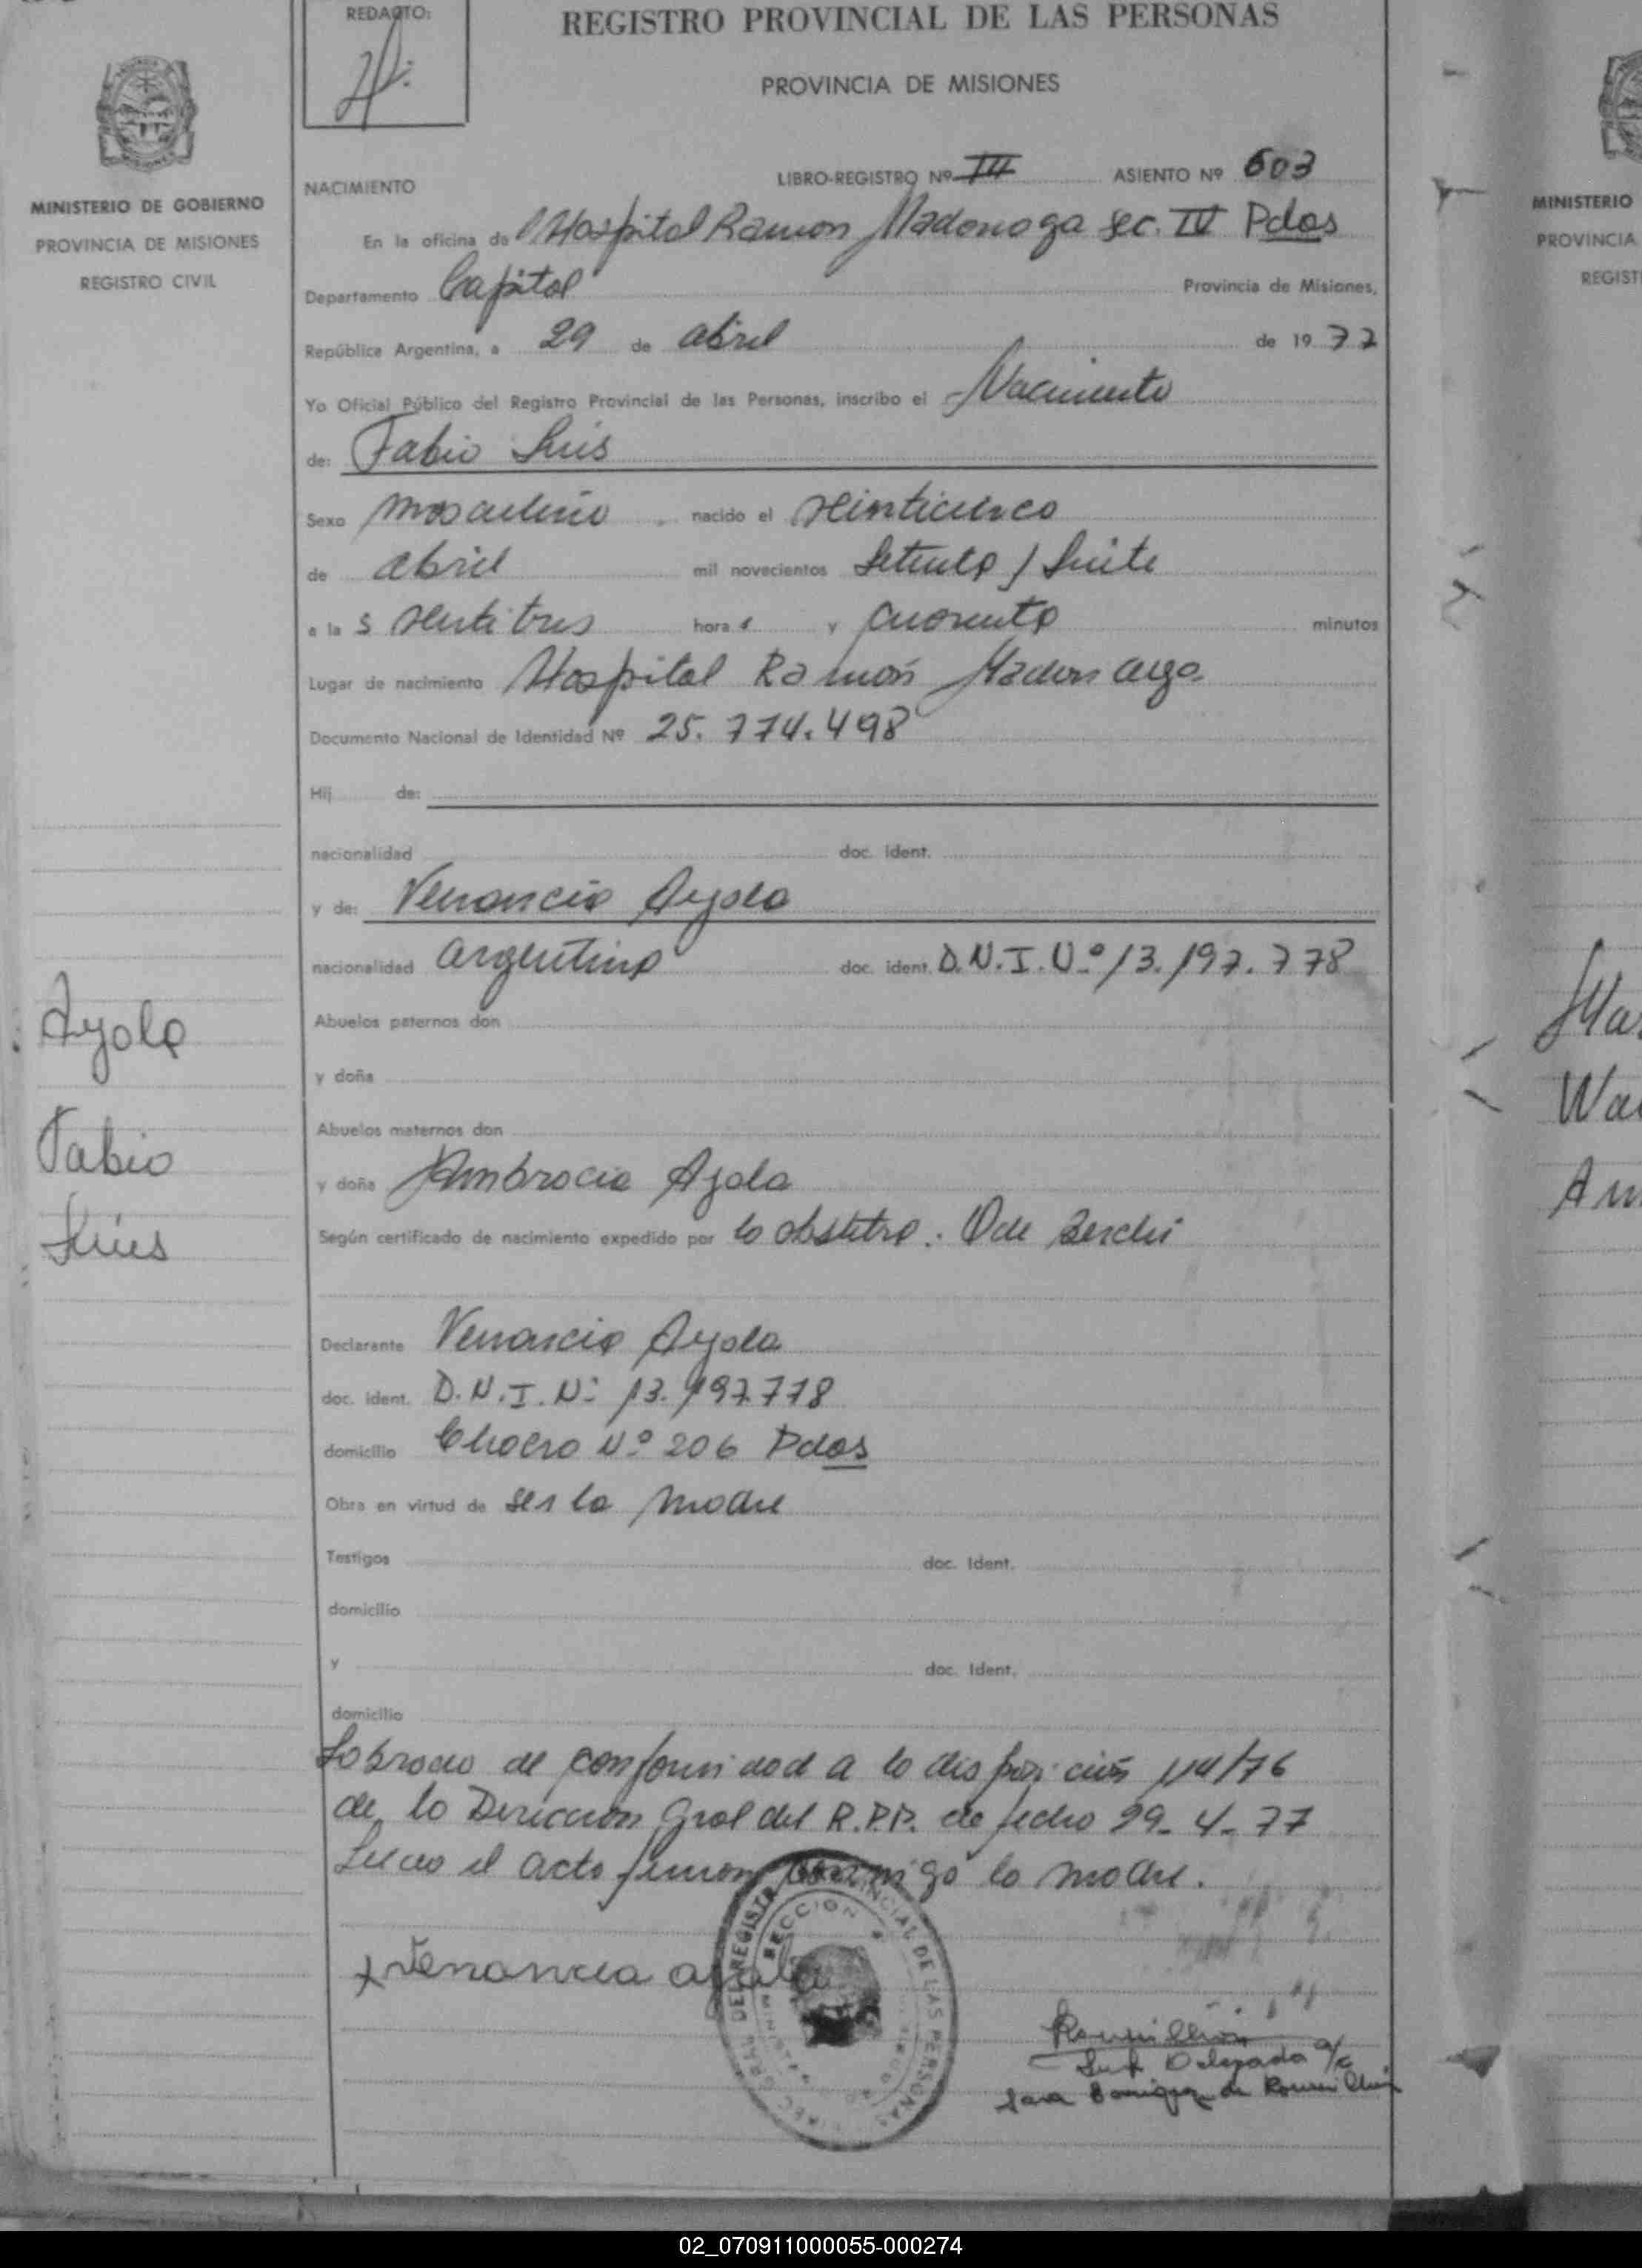 REDACTO:
REGISTRO PROVINCIAL DE LAS PERSONAS
PROVINCIA DE MISIONES
MINISTERIO DE GOBIERNO
PROVINCIA DE MISIONES
REGISTRO CIVIL
LIBRO-REGISTRO Nº III ASIENTO Nº 603
NACIMIENTO
En la oficina de Hospital Ramon Madariaga sec. IV Pdas
Departamento Capital Provincia de Misiones,
República Argentina, a 29 de abril de 19 77
Yo Oficial Público del Registro Provincial de las Personas, inscribo el Nacimiento
de: Fabio Luis
Sexo masculino nacido el veinticinco
de abril mil novecientos setenta y siete
a la s veintitres hora s y cuarenta minutos
Lugar de nacimiento Hospital Ramón Madariaga
Documento Nacional de Identidad Nº 25.774.498
Hij de:
nacionalidad doc. ident.
y de: Venancia Ayala
nacionalidad argentina doc. ident. D.N.I. Nº 13.197.778
Abuelos paternos don
y doña
Abuelos maternos don
y doña Ambrocia Ayala
Según certificado de nacimiento expedido por la obstetra:
Declarante Venancia Ayala
doc. ident. D.N.I. Nº 13.197.778
domicilio Chacra Nº 206 Pdas
Obra en virtud de ser la madre
Testigos doc. Ident.
domicilio
y doc. Ident.
domicilio
Labrada de conformidad a la disposición 114/76
de la Dirección Gral del R.P.P. de fecha 29-4-77
Leida el acta firman conmigo la madre.
x venancia ayala
Sub Delegada a/c
Sara de
Ayala
Fabio
Luis
MINISTERIO
PROVINCIA
REGIST
Ma
Wa
An
02_070911000055-000274